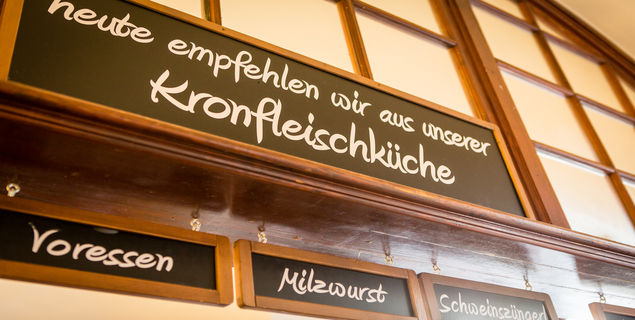 heute empfehlen wir aus unserer
Kronfleischküche
Voressen
Milzwurst
Schweinszüngerl